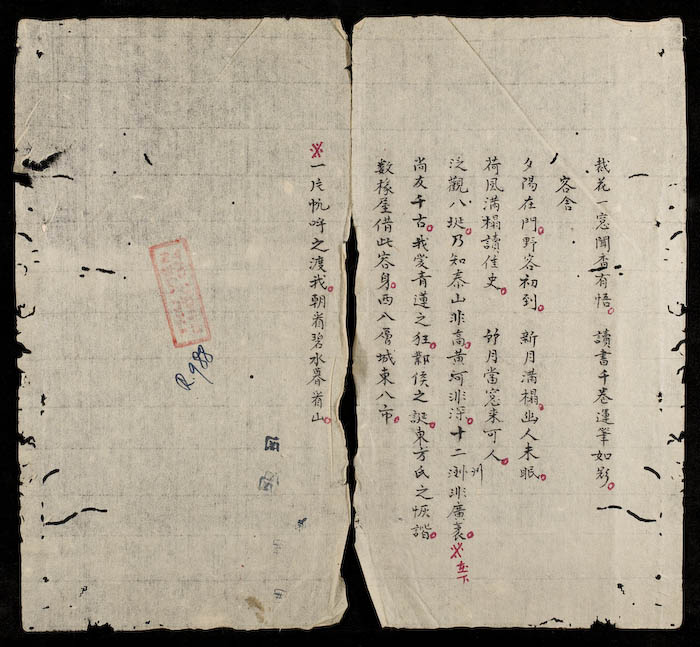 栽花一窓聞香有悟 讀書千卷運筆如彩
客舍
夕陽在門野客初到 新月滿榻幽人未眠
荷風滿榻讀佳史 卻月當窓来可人
泛觀八埏乃知泰山非高黄河非深十二洲非廣袤 在下
州
尚友千古我愛青蓮之狂鄴侯之誕東方氏之恢諧
数椽屋借此容身西八層城東八市
一片帆呼之渡我朝看碧水暮看山
R.988